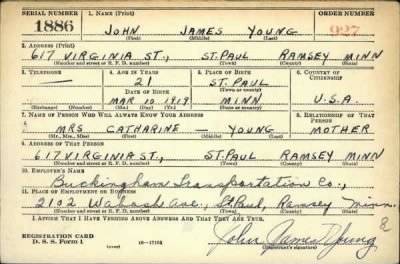 SERIAL NUMBER 1. NAME (Print) ORDER NUMBER
1886 JOHN JAMES YOUNG 927
(First) (Middle) (Last)
2. ADDRESS (Print)
617 VIRGINIA ST., ST. PAUL RAMSEY MINN
(Number and street or R. F. D. number) (Town) (County) (State)
3. TELEPHONE 4. AGE IN YEARS 5. PLACE OF BIRTH 6. COUNTRY OF CITIZENSHIP
— 21 ST. PAUL
(Town or county)
DATE OF BIRTH
MAR 10 1919 MINN U.S.A.
(Exchange) (Number) (Mo.) (Day) (Yr.) (State or country)
7. NAME OF PERSON WHO WILL ALWAYS KNOW YOUR ADDRESS 8. RELATIONSHIP OF THAT PERSON
MRS CATHARINE — YOUNG MOTHER
(Mr., Mrs., Miss) (First) (Middle) (Last)
9. ADDRESS OF THAT PERSON
617 VIRGINIA ST., ST. PAUL RAMSEY MINN
(Number and street or R. F. D. number) (Town) (County) (State)
10. EMPLOYER'S NAME
Buckingham Transportation Co.,
11. PLACE OF EMPLOYMENT OR BUSINESS
2102 Wabash Ave., St. Paul, Ramsey Minn.
(Number and street or R. F. D. number) (Town) (County) (State)
I AFFIRM THAT I HAVE VERIFIED ABOVE ANSWERS AND THAT THEY ARE TRUE.
REGISTRATION CARD
D. S. S. Form 1 16—17105 John James Young
(Registrant's signature)